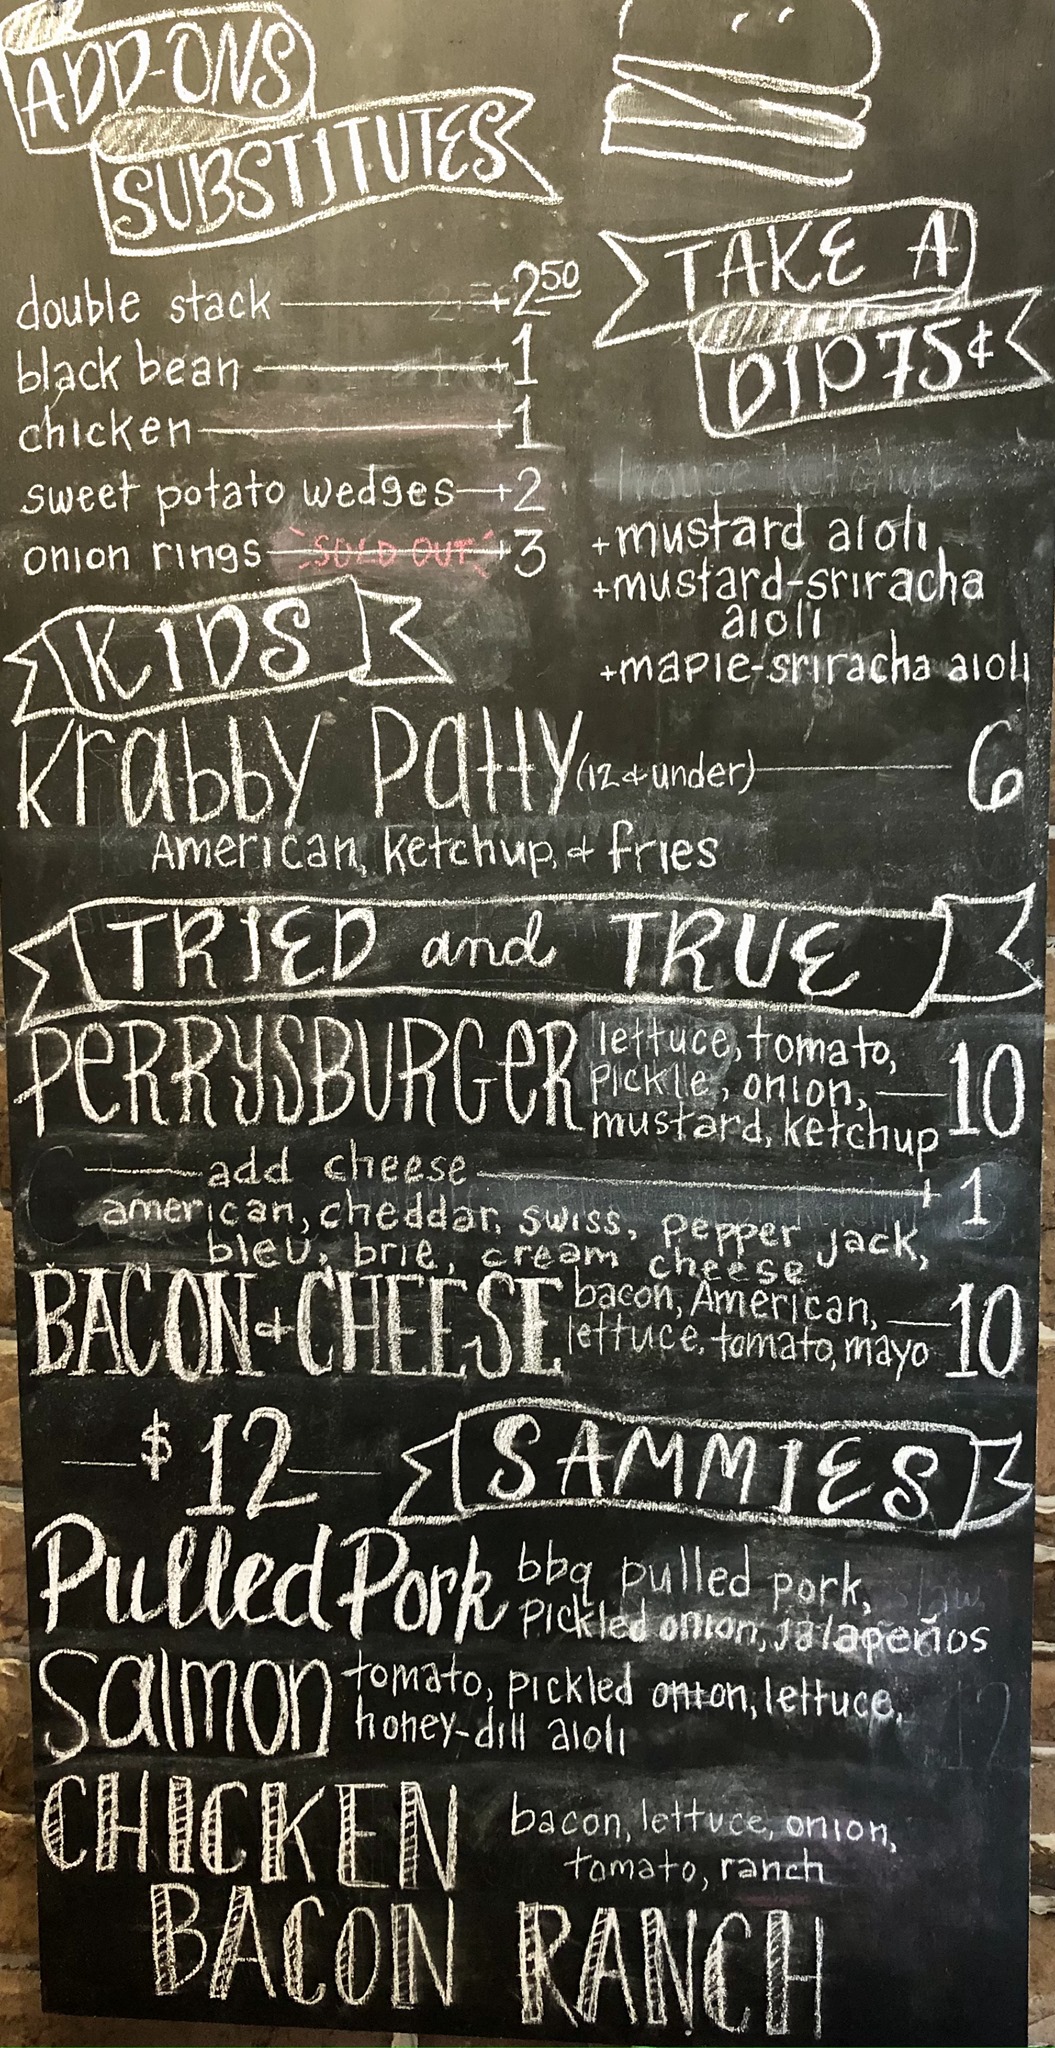 ADD-ONS
SUBSTITUTES
double stack +2 50
black bean +1
chicken +1
sweet potato wedges +2
onion rings SOLD OUT +3
TAKE A
DIP 75¢
house ketchup
+mustard aioli
+mustard-sriracha
aioli
+maple-sriracha aioli
KIDS
Krabby Patty (12 & under) 6
American, ketchup, & fries
TRIED and TRUE
PERRYSBURGER lettuce, tomato,
pickle, onion, 10
mustard, ketchup
add cheese +1
american, cheddar, swiss, pepper jack,
bleu, brie, cream cheese
BACON & CHEESE bacon, American, 10
lettuce, tomato, mayo
$12 SAMMIES
Pulled Pork bbq pulled pork,
pickled onion, jalapeños
Salmon tomato, pickled onion, lettuce,
honey-dill aioli
CHICKEN bacon, lettuce, onion,
tomato, ranch
BACON RANCH